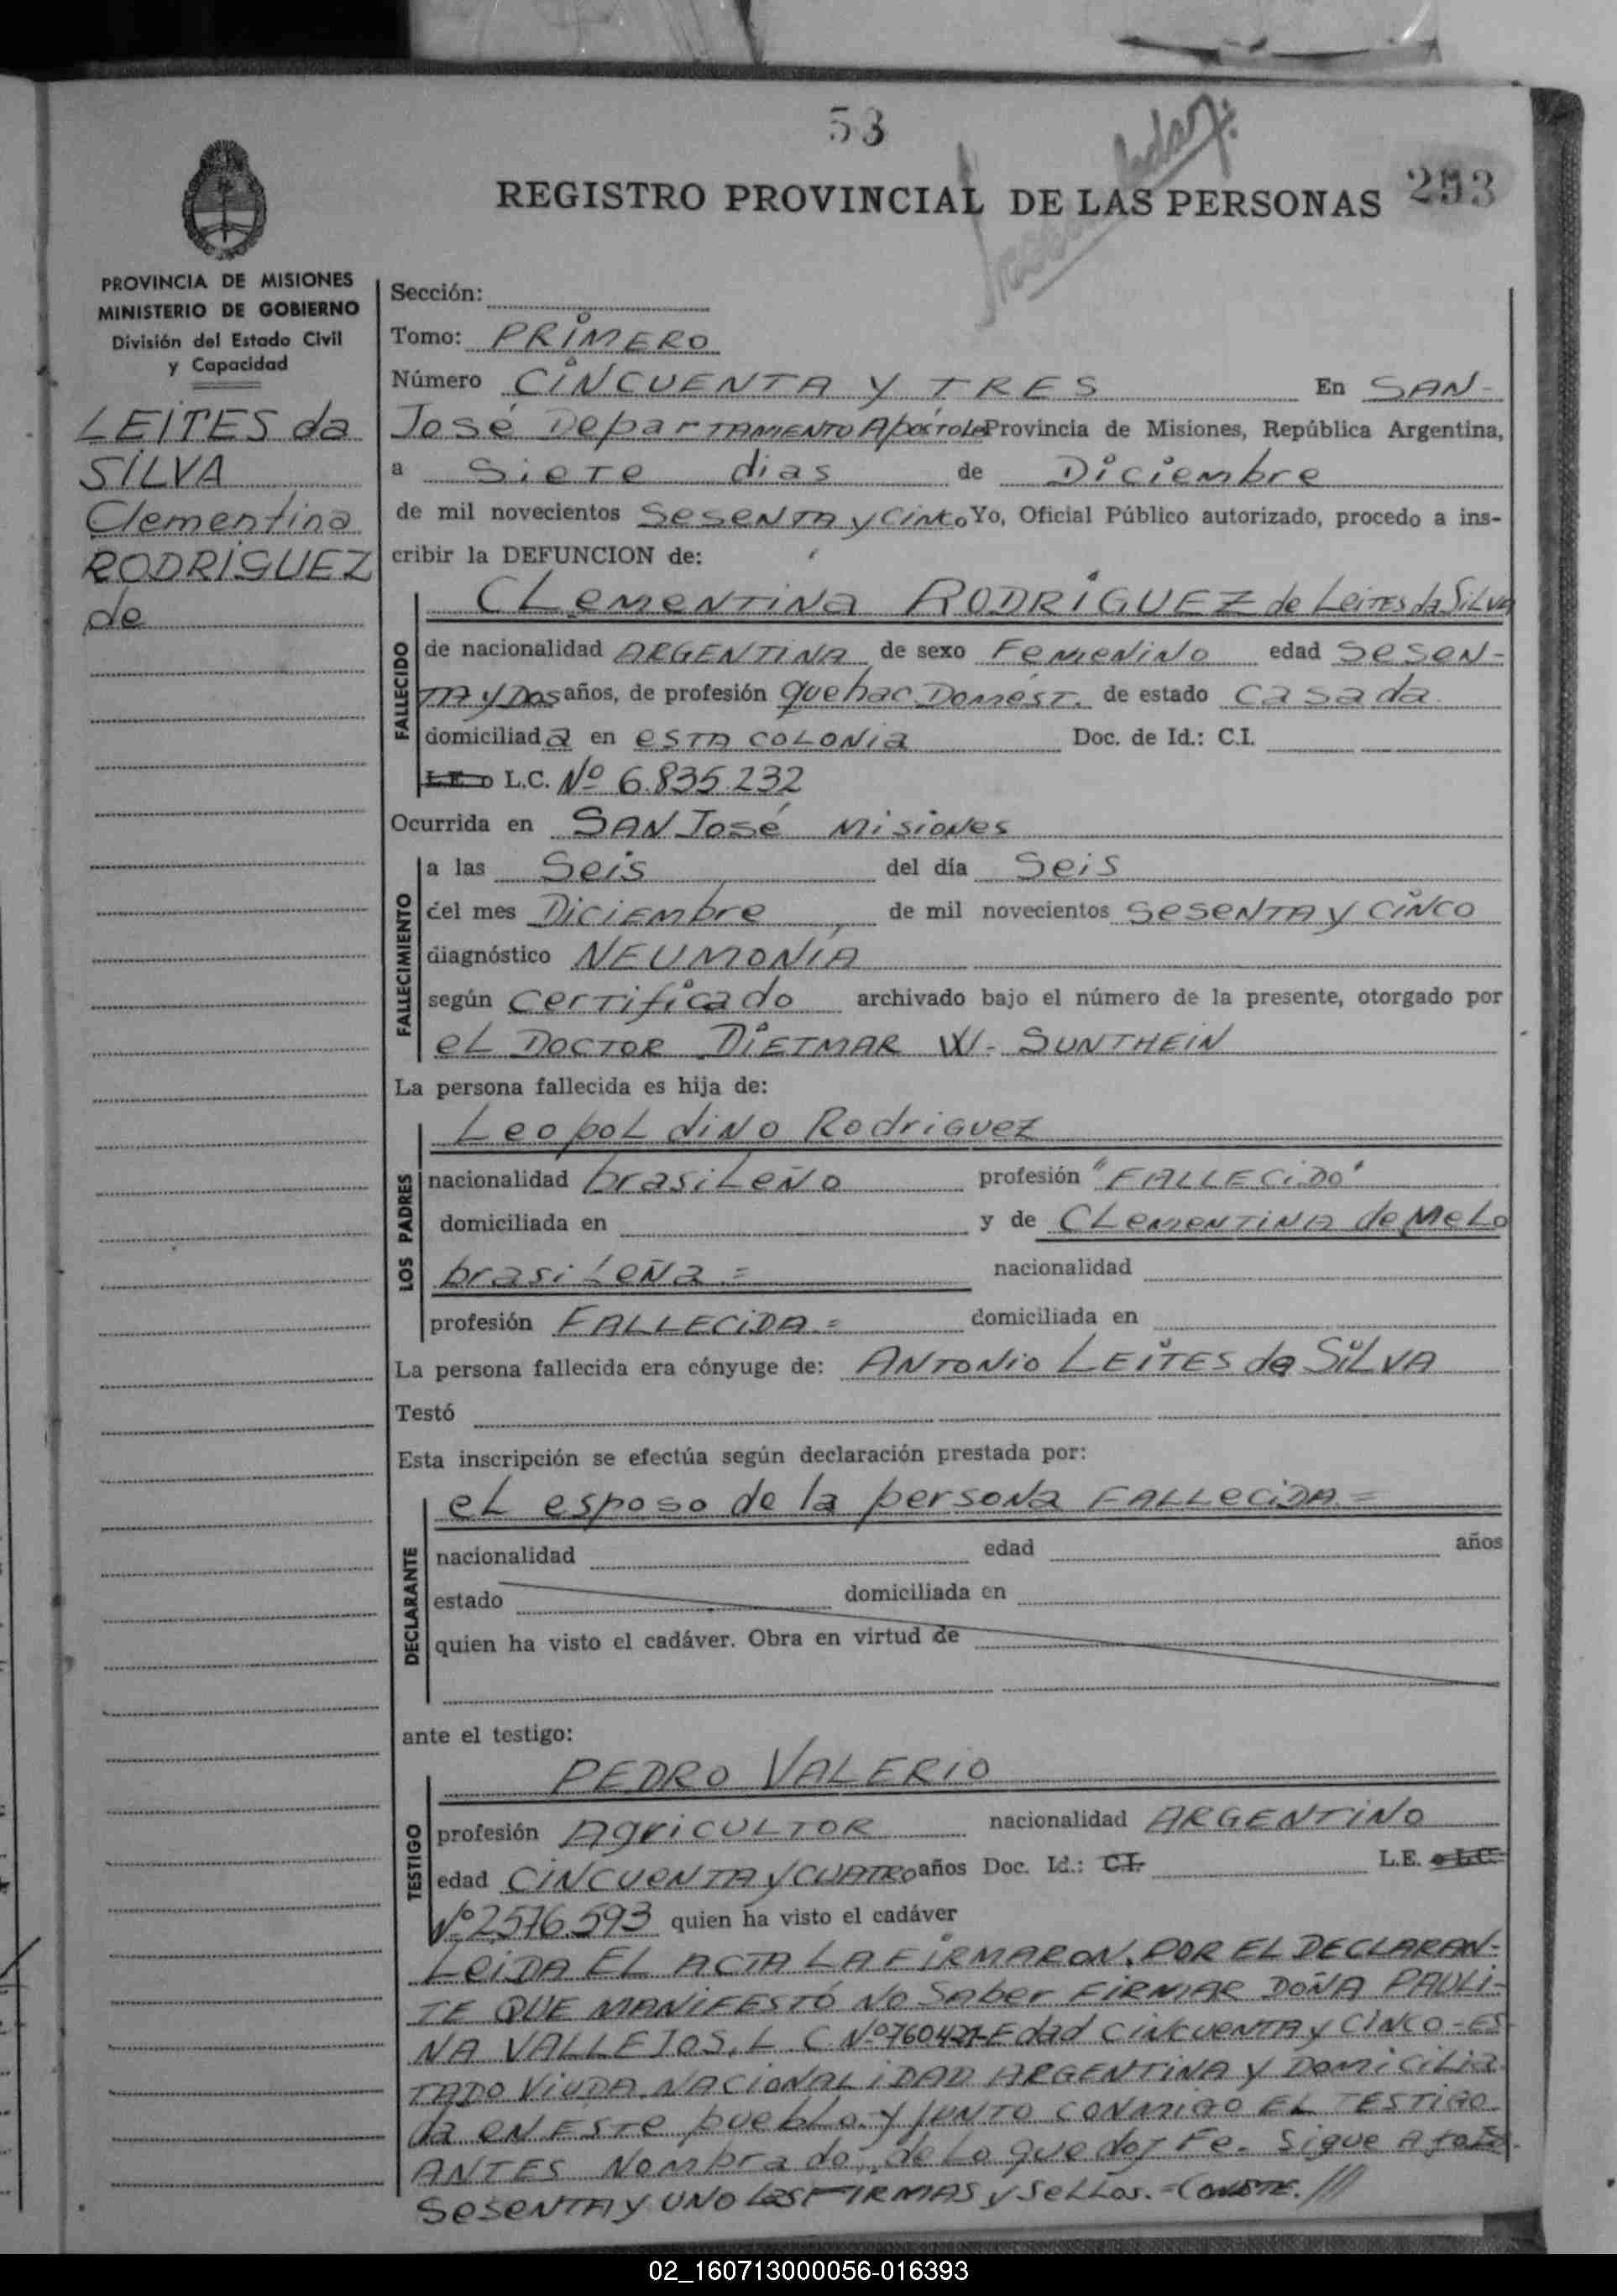 53
253
REGISTRO PROVINCIAL DE LAS PERSONAS
PROVINCIA DE MISIONES
MINISTERIO DE GOBIERNO
División del Estado Civil
y Capacidad
LEITES da
SILVA
Clementina
RODRIGUEZ
de
Sección:
Tomo: PRIMERO
Número CINCUENTA Y TRES En SAN-
José DepartAMENTO Apóstoles Provincia de Misiones, República Argentina,
a Siete dias de Diciembre
de mil novecientos SesentA y Cinco Yo, Oficial Público autorizado, procedo a ins-
cribir la DEFUNCION de:
FALLECIDO
CLementina RODRIGUEZ de Leites da Silva
de nacionalidad ARGENTINA de sexo Femenino edad Sesen-
TA y Dos años, de profesión quehac. Domést. de estado casada
domiciliada en esta colonia Doc. de Id.: C.I.
L.E. o L.C. Nº 6.835.232
Ocurrida en SAN José Misiones
FALLECIMIENTO
a las Seis del día Seis
del mes Diciembre de mil novecientos SesentA y cinco
diagnóstico NEUMONIA
según Certificado archivado bajo el número de la presente, otorgado por
eL DOCTOR DIETMAR W. SUNTHEIN
La persona fallecida es hija de:
LOS PADRES
LeopoLdino Rodriguez
nacionalidad brasiLeño profesión "FALLECIDO"
domiciliada en y de CLementina de MeLo
brasiLeña = nacionalidad
profesión FALLECIDA = domiciliada en
La persona fallecida era cónyuge de: ANTONIO LEITES da SILVA
Testó
Esta inscripción se efectúa según declaración prestada por:
DECLARANTE
eL esposo de la persona FALLECIDA =
nacionalidad edad años
estado domiciliada en
quien ha visto el cadáver. Obra en virtud de
ante el testigo:
TESTIGO
PEDRO VALERIO
profesión AgricULTOR nacionalidad ARGENTINO
edad CINCUENTA y CUATRO años Doc. Id.: C.I. L.E. o L.C.
Nº 2.576.593 quien ha visto el cadáver
LeIDA EL ACTA LA FIRMARON. POR EL DECLARAN-
TE QUE MANIFESTÓ NO Saber FIRMAR DOÑA PAULI-
NA VALLEJOS, L. C. Nº Edad CINCUENTA y CINCO - ES-
TADO VIUDA. NACIONALIDAD ARGENTINA y DomiciLia-
da en ESTE puebLo. y JUNTO CONMIGO EL TESTIGO
ANTES Nombrado, de Lo que doy Fe. Sigue A foja
SesentA y UNO Las FIRMAS y SeLLos. = CONSTE. ///
02_160713000056-016393